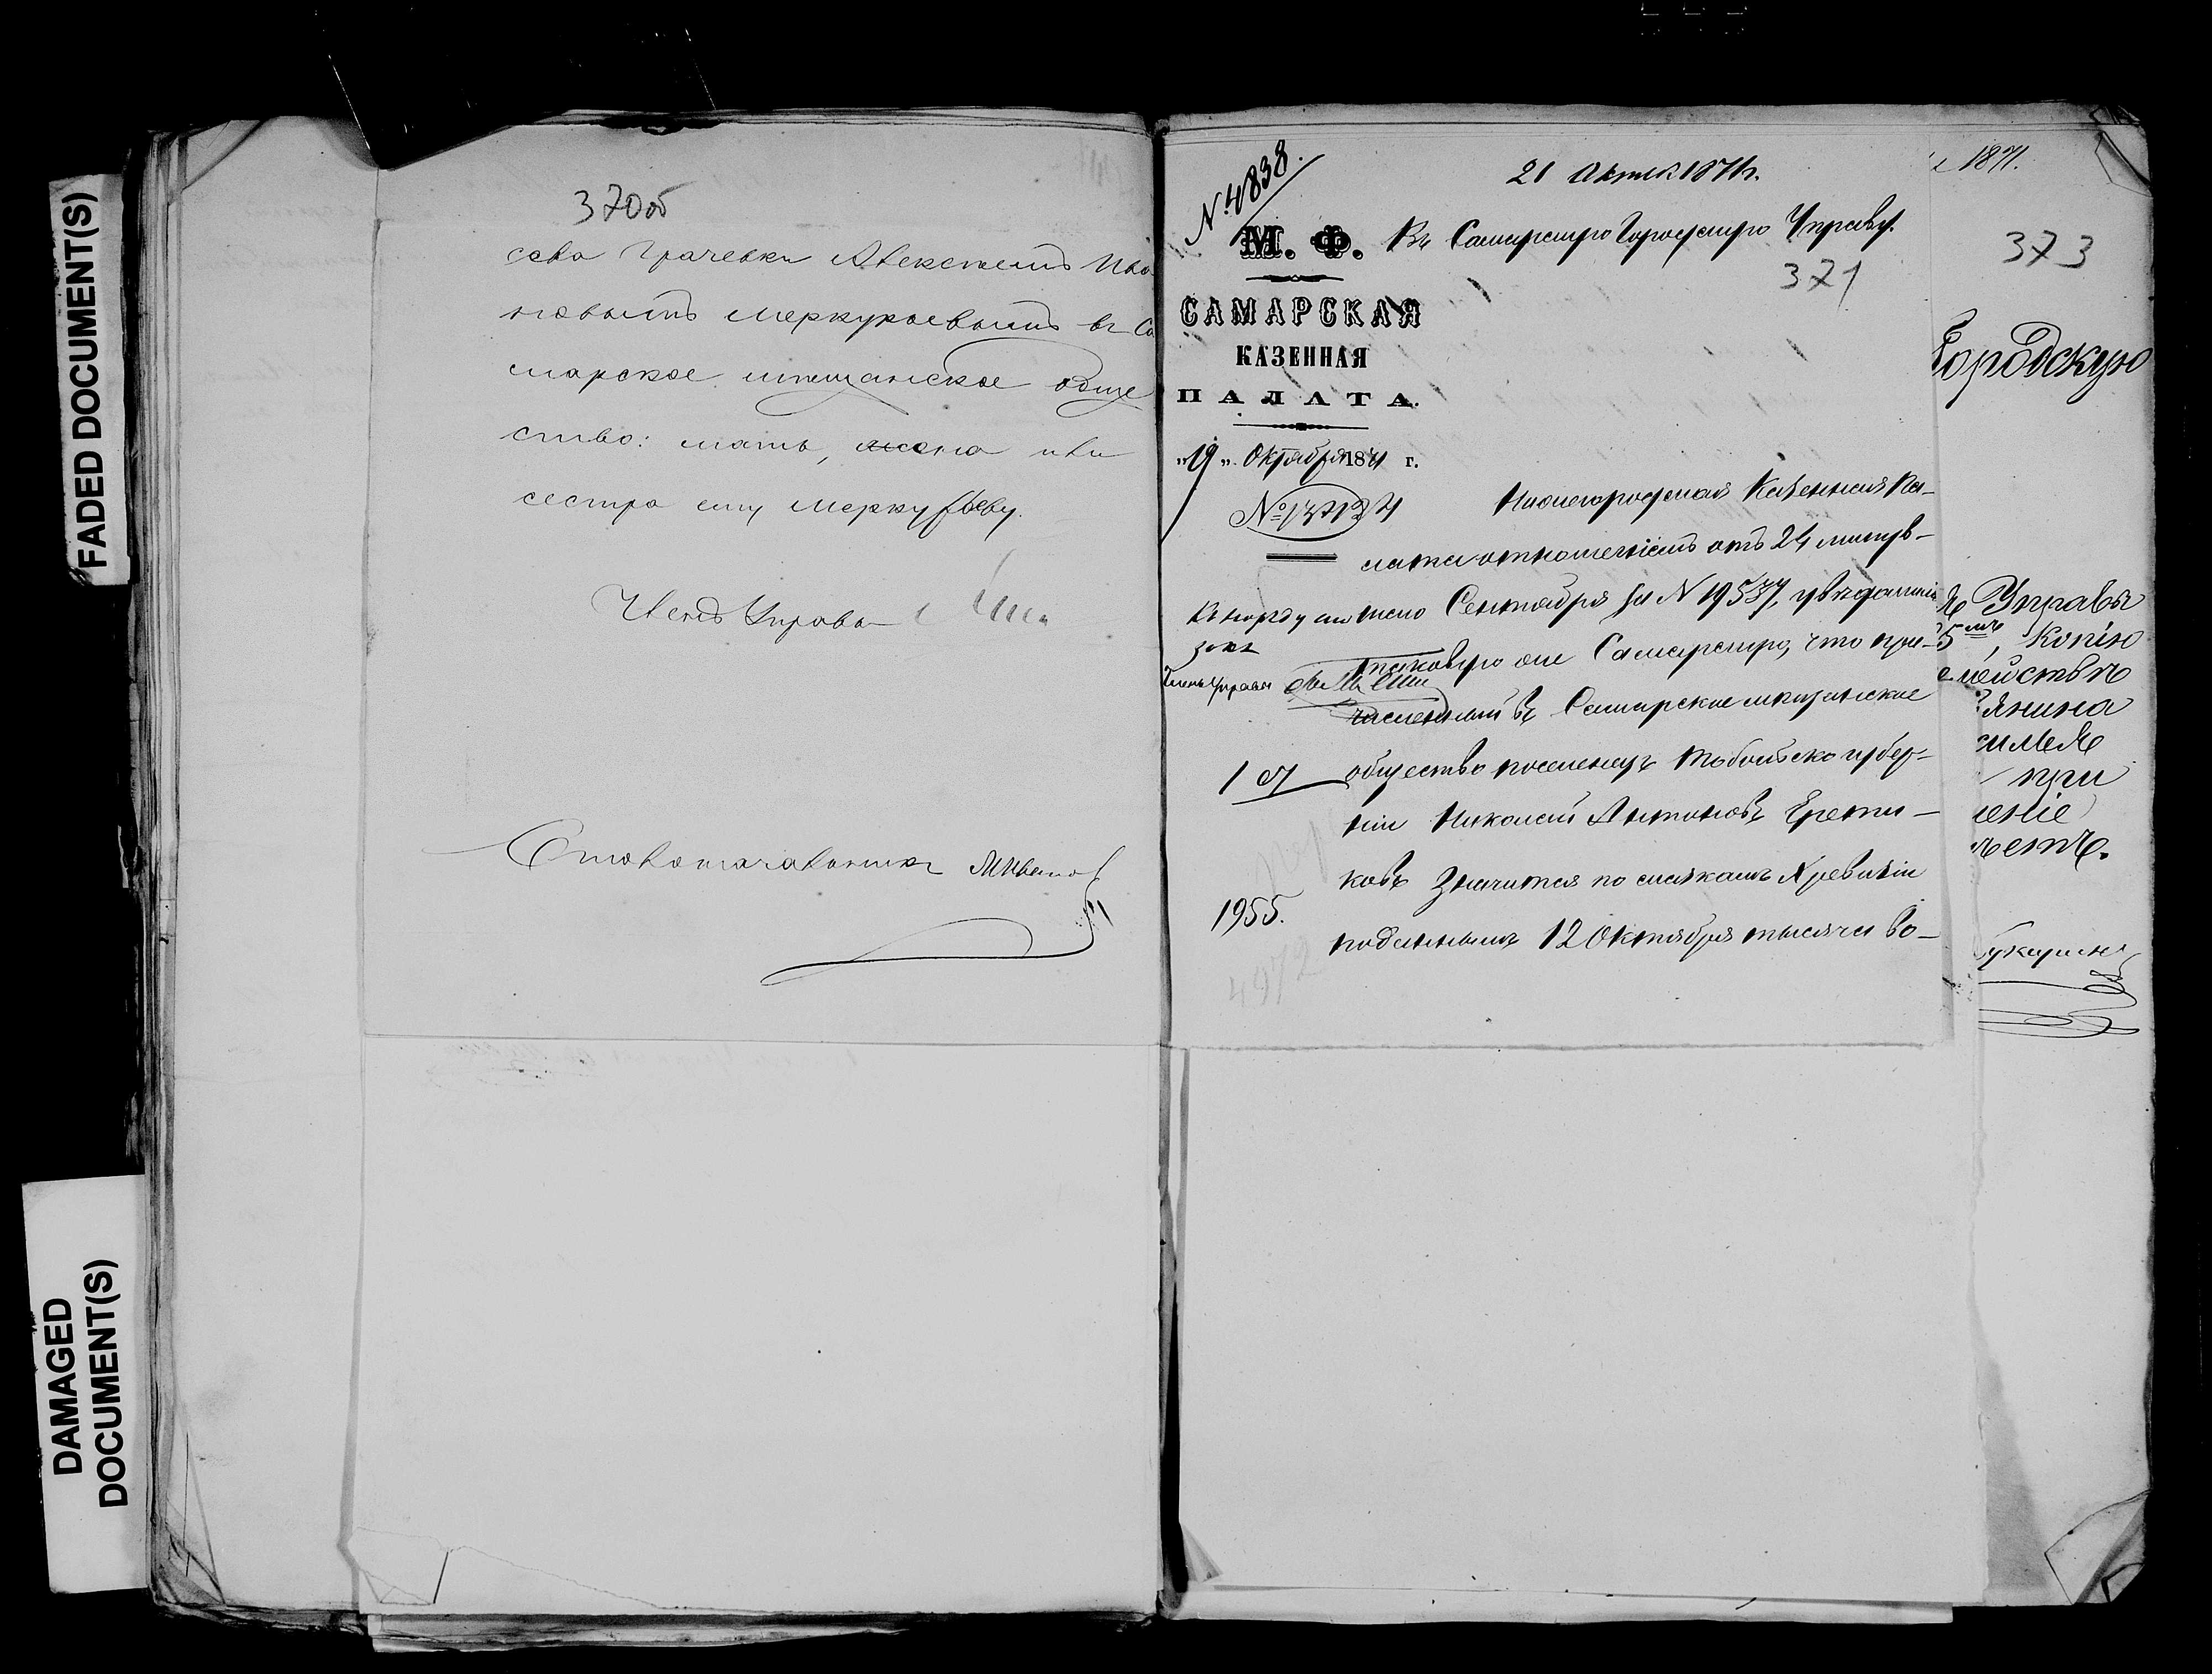 FADED DOCUMENT(S)
DAMAGED
DOCUMENT(S)
370об
сева Грачевки Алексеемъ Ива
новымъ Меркурьевымъ въ Са
марское мѣщанское обще
ство: мать, жена или
сестра ему Меркурьеву.
Членъ Управы
Столоначальникъ М Иванов
№ 4838.
21 Октяб 1871 г.
М. Ф. Въ Самарскую Городскую Управу.
371
САМАРСКАЯ
КАЗЕННАЯ
ПАЛАТА.
„19„ Октября 1871 г.
№ 13712
Нижегородская Казенная Па-
лата отношеніемъ отъ 24 минув-
шаго Сентября за N 19537, увѣдомила
таковую же Самарскую, что при-
Члень Управы
численный въ Самарское мѣщанское
общество поселенецъ Тобольской губер-
ніи Николай Антоновъ Ерети-
ковъ значится по сказкамъ X ревизіи
1955.
поданнымъ 12 Октября тысяча во-
4972
1871.
373
Городскую
Управы
5, копію
янина
при